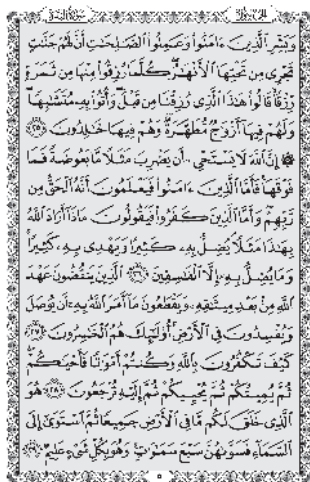 الجزء الأول سورة البقرة
وَبَشِّرِ ٱلَّذِينَ ءَامَنُوا۟ وَعَمِلُوا۟ ٱلصَّٰلِحَٰتِ أَنَّ لَهُمْ جَنَّٰتٍ
تَجْرِى مِن تَحْتِهَا ٱلْأَنْهَٰرُ ۖ كُلَّمَا رُزِقُوا۟ مِنْهَا مِن ثَمَرَةٍ
رِّزْقًا ۙ قَالُوا۟ هَٰذَا ٱلَّذِى رُزِقْنَا مِن قَبْلُ ۖ وَأُتُوا۟ بِهِۦ مُتَشَٰبِهًا ۖ
وَلَهُمْ فِيهَآ أَزْوَٰجٌ مُّطَهَّرَةٌ ۖ وَهُمْ فِيهَا خَٰلِدُونَ ﴿٢٥﴾
۞ إِنَّ ٱللَّهَ لَا يَسْتَحْىِۦٓ أَن يَضْرِبَ مَثَلًا مَّا بَعُوضَةً فَمَا
فَوْقَهَا ۚ فَأَمَّا ٱلَّذِينَ ءَامَنُوا۟ فَيَعْلَمُونَ أَنَّهُ ٱلْحَقُّ مِن
رَّبِّهِمْ ۖ وَأَمَّا ٱلَّذِينَ كَفَرُوا۟ فَيَقُولُونَ مَاذَآ أَرَادَ ٱللَّهُ
بِهَٰذَا مَثَلًا ۘ يُضِلُّ بِهِۦ كَثِيرًا وَيَهْدِى بِهِۦ كَثِيرًا ۚ
وَمَا يُضِلُّ بِهِۦٓ إِلَّا ٱلْفَٰسِقِينَ ﴿٢٦﴾ ٱلَّذِينَ يَنقُضُونَ عَهْدَ
ٱللَّهِ مِنۢ بَعْدِ مِيثَٰقِهِۦ وَيَقْطَعُونَ مَآ أَمَرَ ٱللَّهُ بِهِۦٓ أَن يُوصَلَ
وَيُفْسِدُونَ فِى ٱلْأَرْضِ ۚ أُو۟لَٰٓئِكَ هُمُ ٱلْخَٰسِرُونَ ﴿٢٧﴾
كَيْفَ تَكْفُرُونَ بِٱللَّهِ وَكُنتُمْ أَمْوَٰتًا فَأَحْيَٰكُمْ ۖ
ثُمَّ يُمِيتُكُمْ ثُمَّ يُحْيِيكُمْ ثُمَّ إِلَيْهِ تُرْجَعُونَ ﴿٢٨﴾ هُوَ
ٱلَّذِى خَلَقَ لَكُم مَّا فِى ٱلْأَرْضِ جَمِيعًا ثُمَّ ٱسْتَوَىٰٓ إِلَى
ٱلسَّمَآءِ فَسَوَّىٰهُنَّ سَبْعَ سَمَٰوَٰتٍ ۚ وَهُوَ بِكُلِّ شَىْءٍ عَلِيمٌ ﴿٢٩﴾
٥